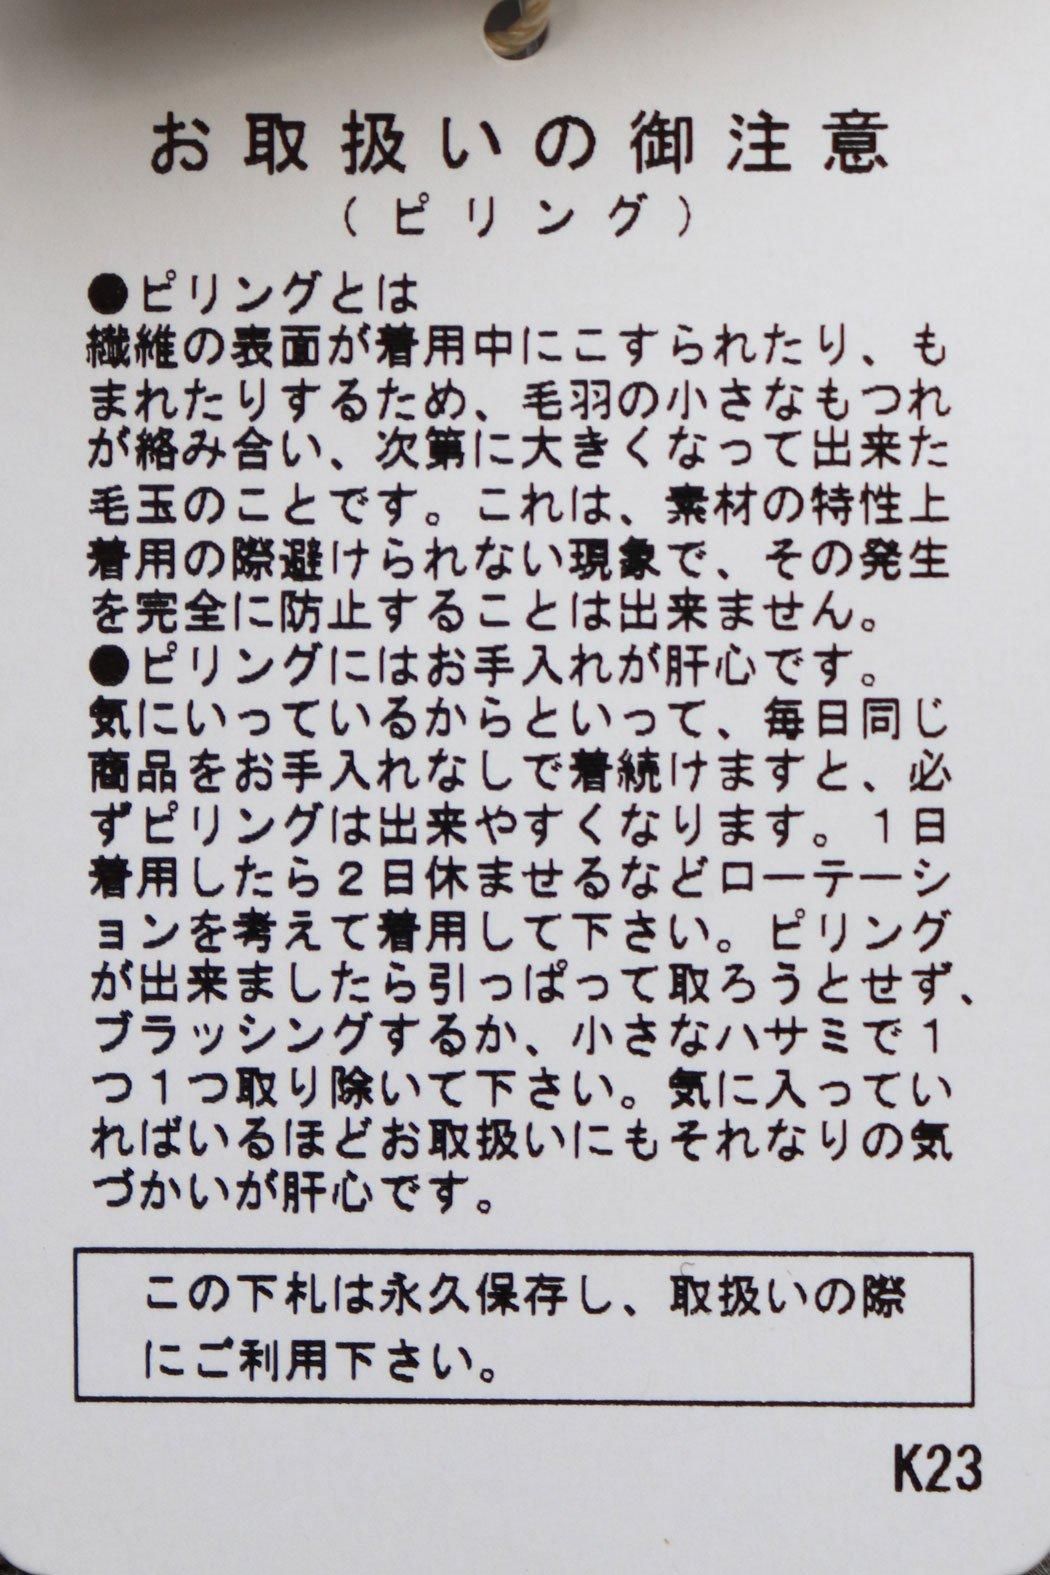 お取扱いの御注意
（ピリング）
●ピリングとは
繊維の表面が着用中にこすられたり、も
まれたりするため、毛羽の小さなもつれ
が絡み合い、次第に大きくなって出来た
毛玉のことです。これは、素材の特性上
着用の際避けられない現象で、その発生
を完全に防止することは出来ません。
●ピリングにはお手入れが肝心です。
気にいっているからといって、毎日同じ
商品をお手入れなしで着続けますと、必
ずピリングは出来やすくなります。1日
着用したら2日休ませるなどローテーシ
ョンを考えて着用して下さい。ピリング
が出来ましたら引っぱって取ろうとせず、
ブラッシングするか、小さなハサミで1
つ1つ取り除いて下さい。気に入ってい
ればいるほどお取扱いにもそれなりの気
づかいが肝心です。
この下札は永久保存し、取扱いの際
にご利用下さい。
K23